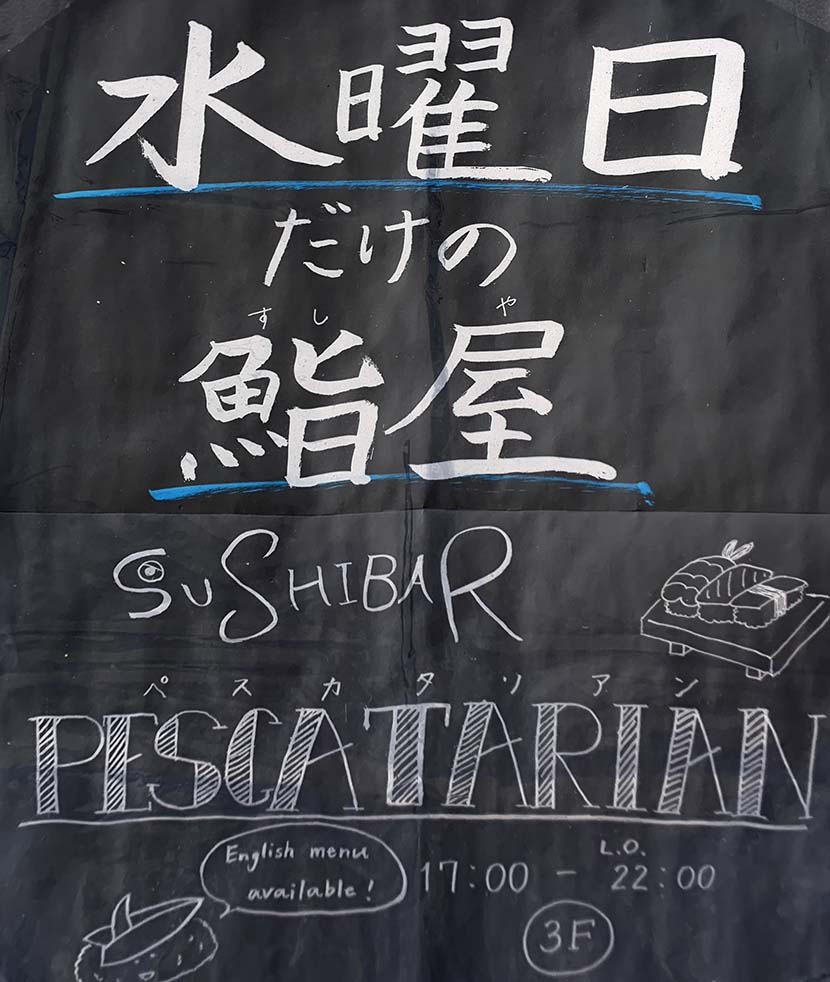 水曜日
だけの
すし や
鮨屋
SUSHIBAR
ペスカタリアン
PESCATARIAN
English menu
available!
L.O.
17:00 - 22:00
3F